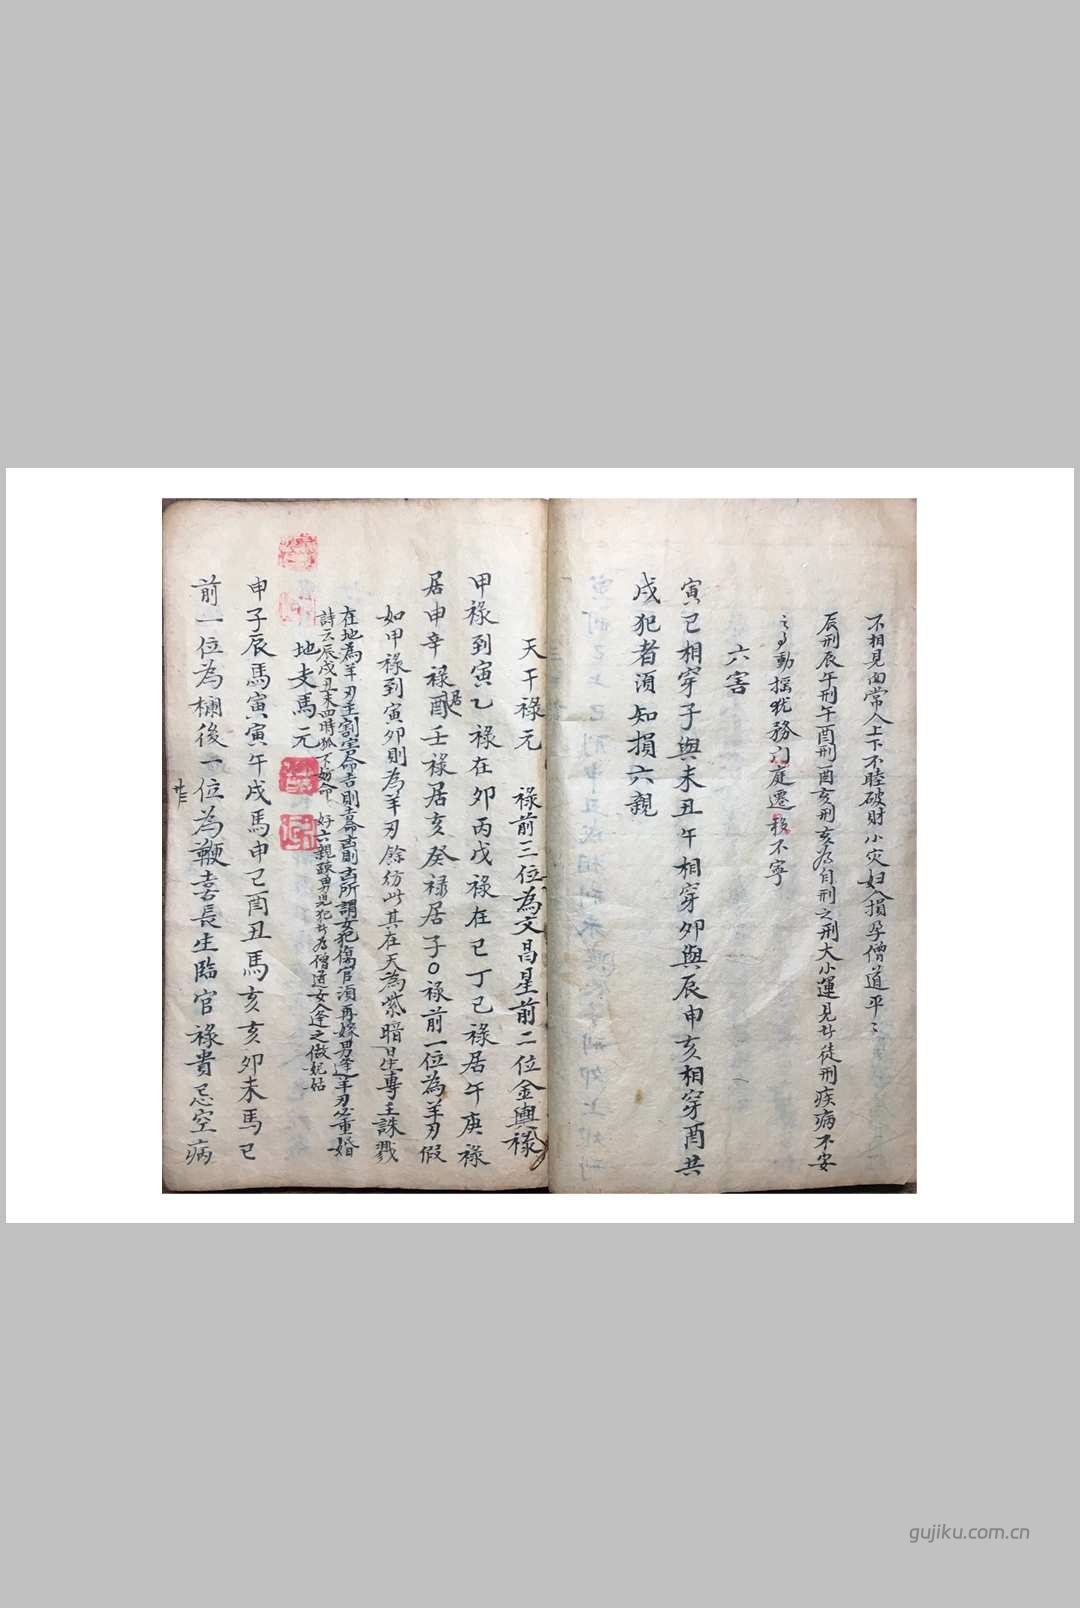 不相見面常人上下不睦破財小灾妇人損孕僧道平
辰刑辰午刑午酉刑酉亥刑亥為自刑之刑大小運見者徒刑疾病不安
動摇犹務门庭遷移不寧
六害
寅巳相穿子與未丑午相穿卯與辰申亥相穿酉共
戌犯者須知損六親
天干祿元 祿前三位為文昌星前二位金輿祿
甲祿到寅乙祿在卯丙戊祿在巳丁己祿居午庚祿
居申辛祿居酉壬祿居亥癸祿居子○祿前一位為羊刃假
如甲祿到寅卯則為羊刃餘仿此其在天為紫暗星專主誅戮
在地為羊刃主割害命吉則吉命凶則凶所謂女犯傷官須再嫁男逢羊刃必重婚
詩云辰戌丑未四時孤 六親踈男兒犯者為僧道女人逢之做妮姑
地支馬元
申子辰馬寅寅午戌馬申巳酉丑馬亥亥卯未馬巳
前一位為欄後一位為鞭喜長生臨官祿貴忌空病
gujiku.com.cn